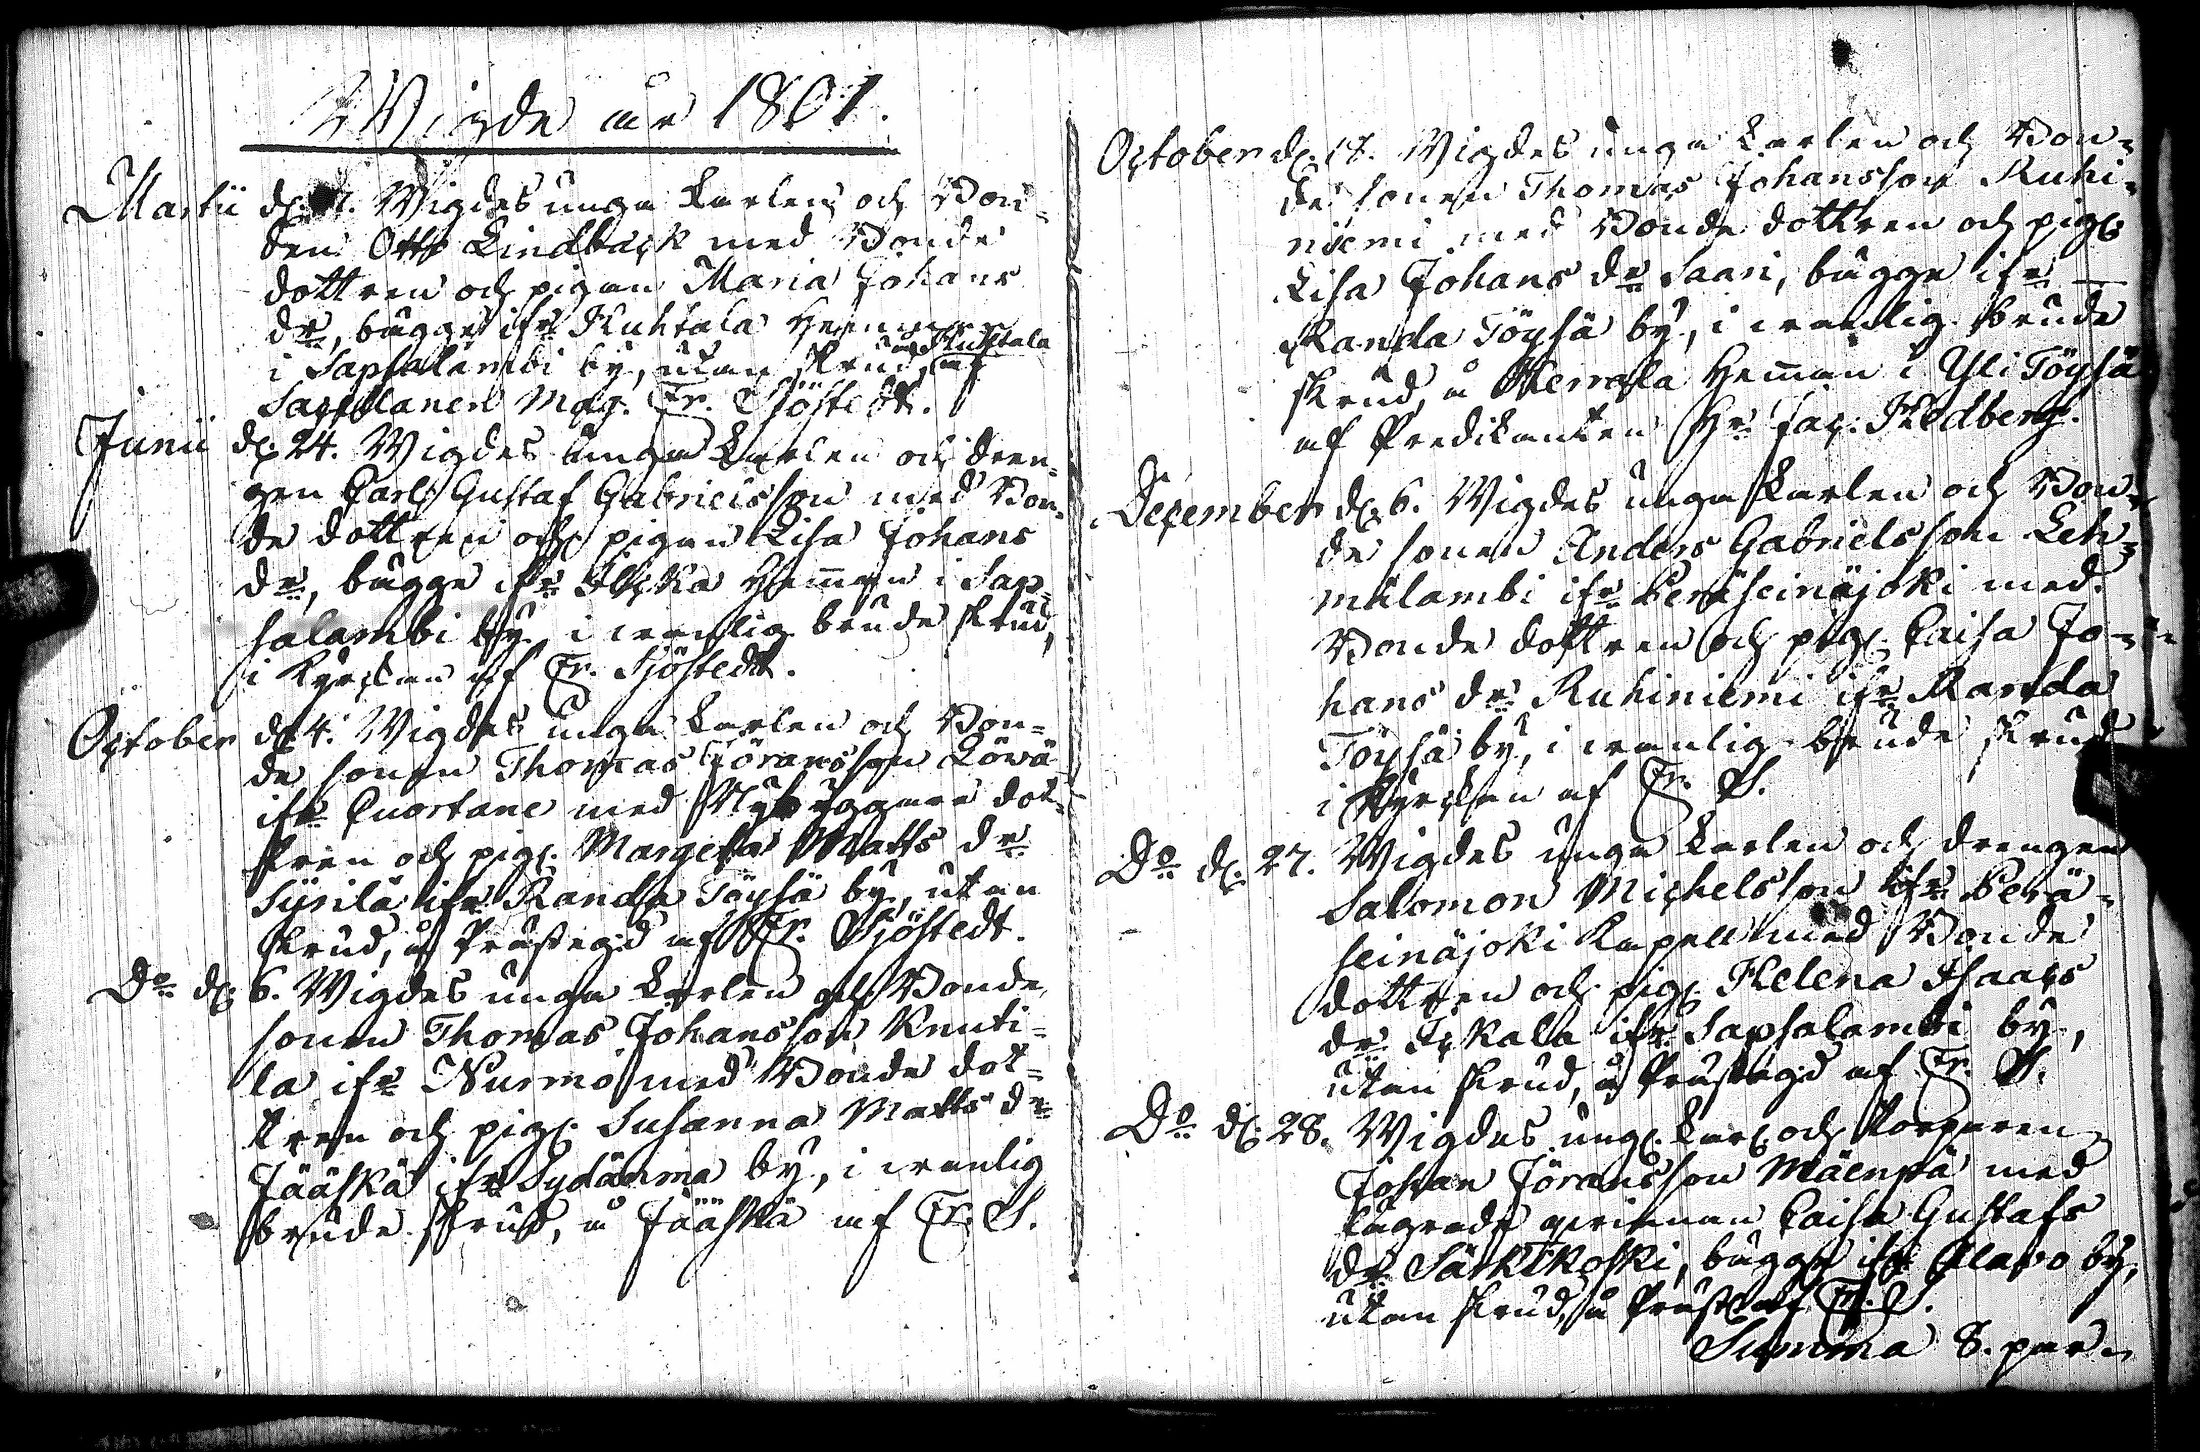 Wigde år 1801.
Martii d. Wigdes unga Karlen och Bon-
den Otto Lindback med Bonde
dottren och pigan Maria Johans
dr, bägge ifr. Kuhtala Hemman
i Sapsalambi by, utan skrud, å Kuhtala af
Sacellanen Mag. Er. Sjöstedt.
Junii d. 24. Wigdes unga Karlen och dren-
gen Carl Gustaf Gabrielsson med Bon-
de dottren och pigan Lisa Johans
dr, bägge ifr. Hemman i Sap-
salambi by, i wanlig brude skrud,
i Kyrckan af Er. Sjöstedt.
October d. 4. Wigdes unga Karlen och Bon-
de sonen Thomas Jöransson Löwä
ifr. Cuortane med Nybyggare dot-
tren och pig. Margeta Matts dr
Syrilä ifr. Randa Töysä by, utan
skrud, å Prästegd af Er. Sjöstedt.
Do d. 6. Wigdes unga Karlen och Bonde
sonen Thomas Johansson Knuti-
la ifr. Nurmo med Bonde dot-
tren och pig. Susanna Matts dr
Jääskä ifr. Sydänma by, i wanlig
brude skrud, å Jääskä af Er. S.
October d. 18. Wigdes unga Karlen och Bon-
de sonen Thomas Johansson Ruhi-
niemi med Bonde dottren och pig.
Lisa Johans dr Saari, bägge ifr.
Randa Töysä by, i wanlig brude
skrud, å Herrala Hemman i Yli Töysä
af Predikanten Hr Jac. Hedberg.
December d. 6. Wigdes unga Karlen och Bon-
de sonen Anders Gabrielsson Leh-
mälambi ifr. Peräseinäjoki med
Bonde dottren och pig. Caisa Jo-
hans dr Ruhiniemi ifr. Randa
Töysä by, i wanlig brude skrud
i Kyrckan af Er. S.
Do d. 27. Wigdes unga Karlen och drengen
Salomon Michelsson ifr. Perä-
seinäjoki Kapell med Bonde
dottren och pig. Helena Isaacs
dr ifr. Sapsalambi by,
utan skrud, å Prästegd af Er. S.
Do d. 28. Wigdes ung. Karl. och Torparen
Johan Jöransson Mäenpä med
lägrade qwinnan Caisa Gustafs
dr Särkikoski, bägge ifr. Alavo by,
utan skrud, å Präst. af Er. S.
Summa 8. par.